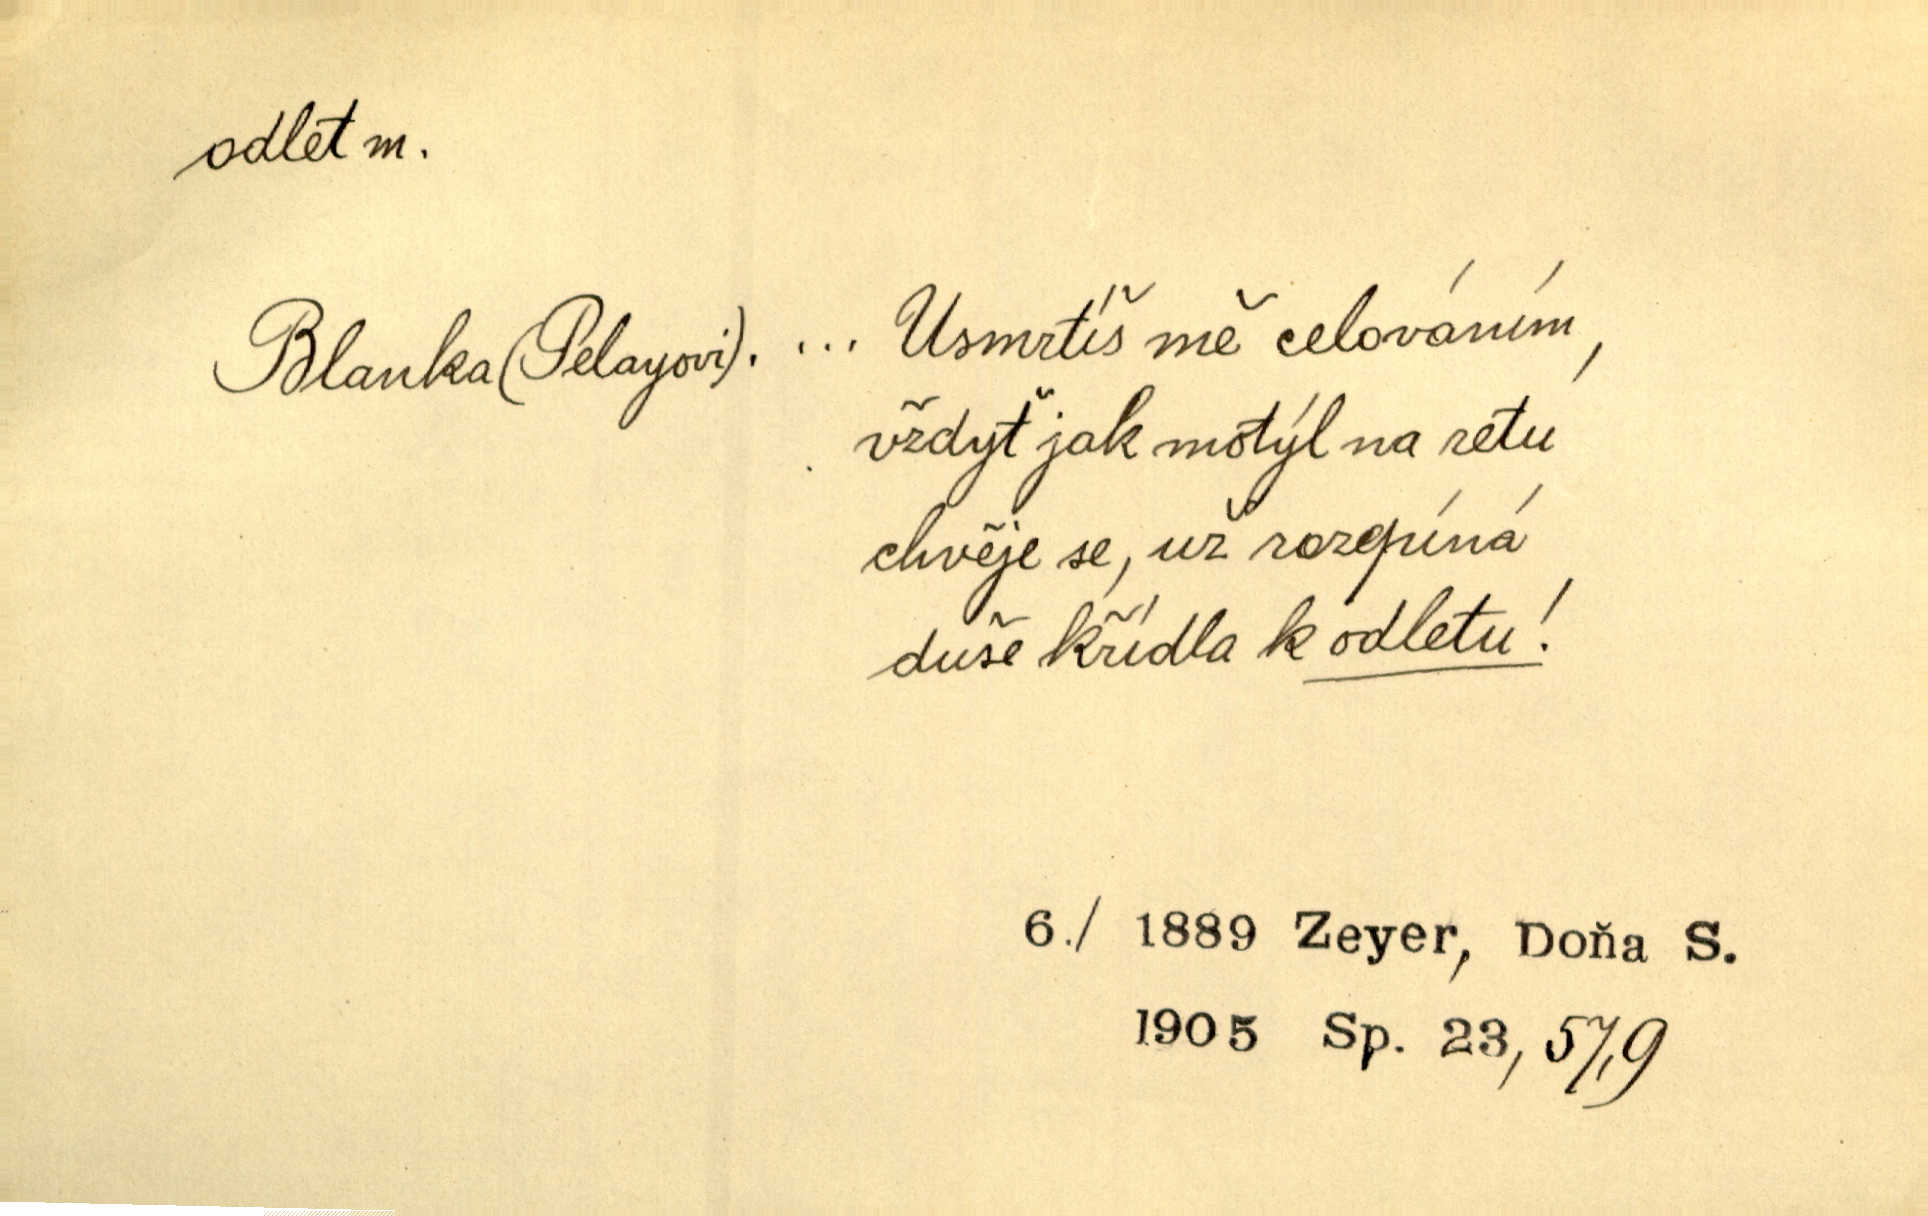 odlet m.
Blanka (Pelayovi). ... Usmrtíš mě celováním,
vždyť jak motýl na retu
chvěje se, už rozepíná
duše křídla k odletu!
6./ 1889 Zeyer, Doňa S.
1905 Sp. 23, 57,9